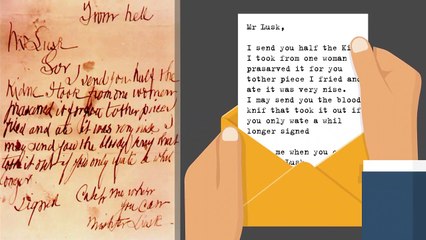 From hell
Mr Lusk
Sor
I send you half the
Kidne I took from one women
prasarved it for you tother piece I
fried and ate it was very nise I
may send you the bloody knif that
took it out if you only wate a whil
longer
Signed Catch me when
you can
Mishter Lusk
Mr Lusk,
I send you half the Ki
I took from one woman
prasarved it for you
tother piece I fried and
ate it was very nise.
I may send you the blood
knif that took it out if
you only wate a whil
longer signed
me when you c
Lusk